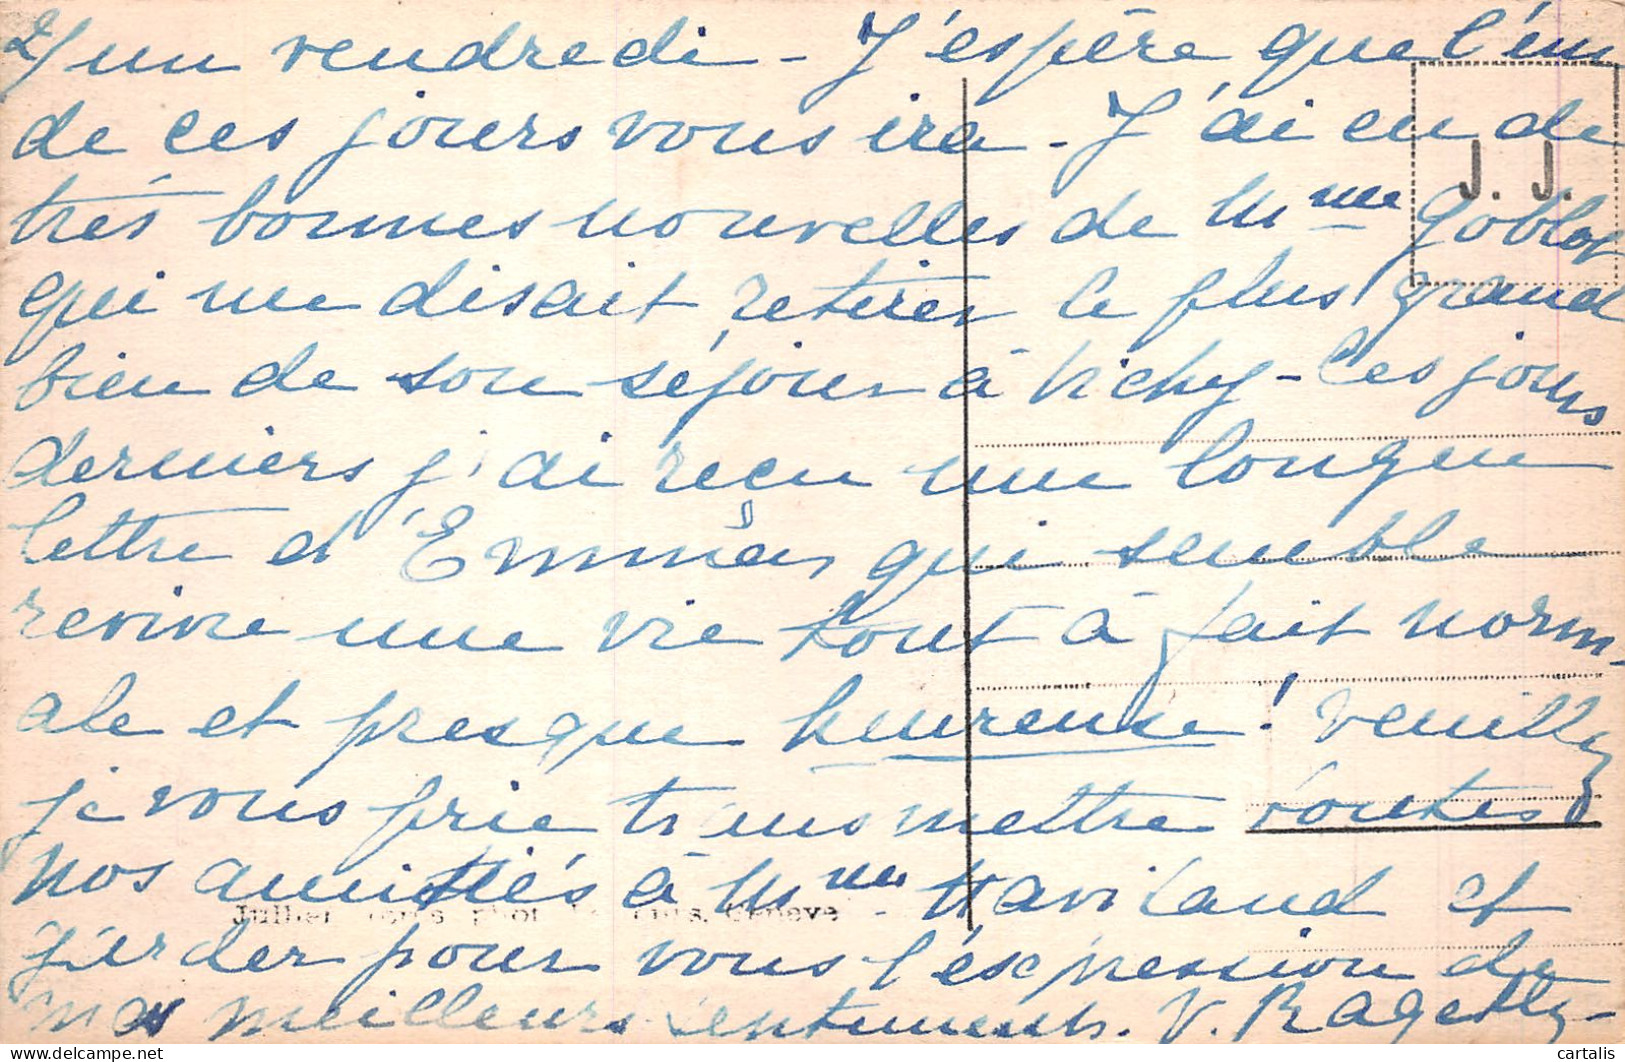 2/ un vendredi - J'espère que l'un
de ces jours vous ira - J'ai eu de
J. J.
très bonnes nouvelles de Mme Goblot
qui me disait retirer le plus grand
bien de son séjour à Vichy - Ces jours
derniers j'ai reçu une longue
lettre d' qui semble
revivre une vie tout à fait norm-
ale et presque heureuse ! Veuillez
je vous prie transmettre toutes
nos amitiés à Mme et
Jullien Genève
garder pour vous l'expression de
nos meilleurs sentiments. V. Ragettly-
cartalis